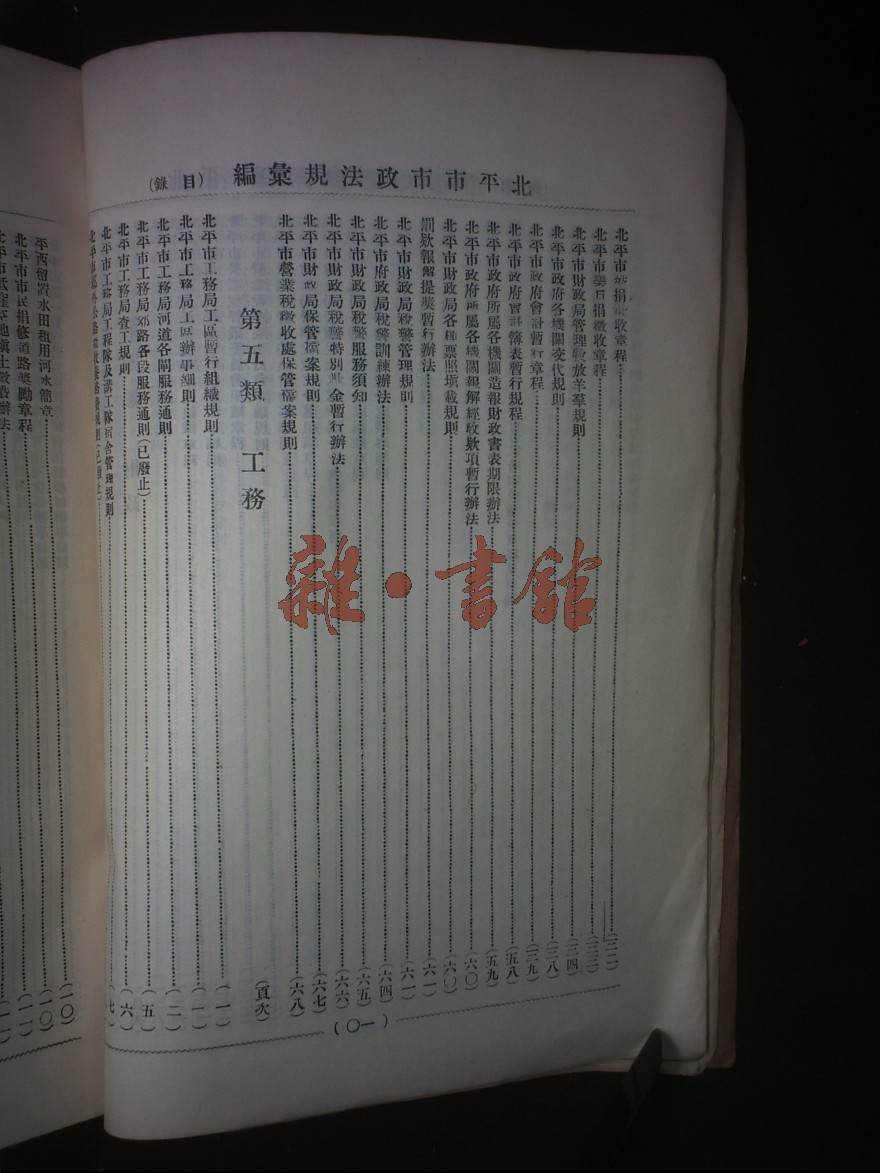 北平市市政法規彙編 (目錄)
北平市 捐 收章程 (三二)
北平市 捐徵收章程 (三三)
北平市財政局管理 放羊羣規則 (三四)
北平市政府各機關交代規則 (三八)
北平市政府會計暫行章程 (三九)
北平市政府會計簿表暫行規程 (五八)
北平市政府所屬各機關造報財政書表期限辦法 (五九)
北平市政府所屬各機關報解經收款項暫行辦法 (六〇)
北平市財政局各種票照填載規則 (六〇)
罰款報解提獎暫行辦法 (六一)
北平市財政局稅警管理規則 (六一)
北平市府政局稅警訓練辦法 (六四)
北平市財政局稅警服務須知 (六五)
北平市財政局稅警特別 金暫行辦法 (六六)
北平市財政局保管檔案規則 (六七)
北平市營業稅徵收處保管檔案規則 (六八)
第五類 工務 (頁次)
北平市工務局工區暫行組織規則 (一)
北平市工務局工區辦事細則 (一)
北平市工務局河道各閘服務通則 (二)
北平市工務局郊路各段服務通則(已廢止) (五)
北平市工務局查工規則 (六)
北平市工務局工程隊及溝工隊宿舍管理規則 (七)
(一〇)
平西留置水田租用河水簡章 (一〇)
北平市市民捐修道路獎勵章程 (一〇)